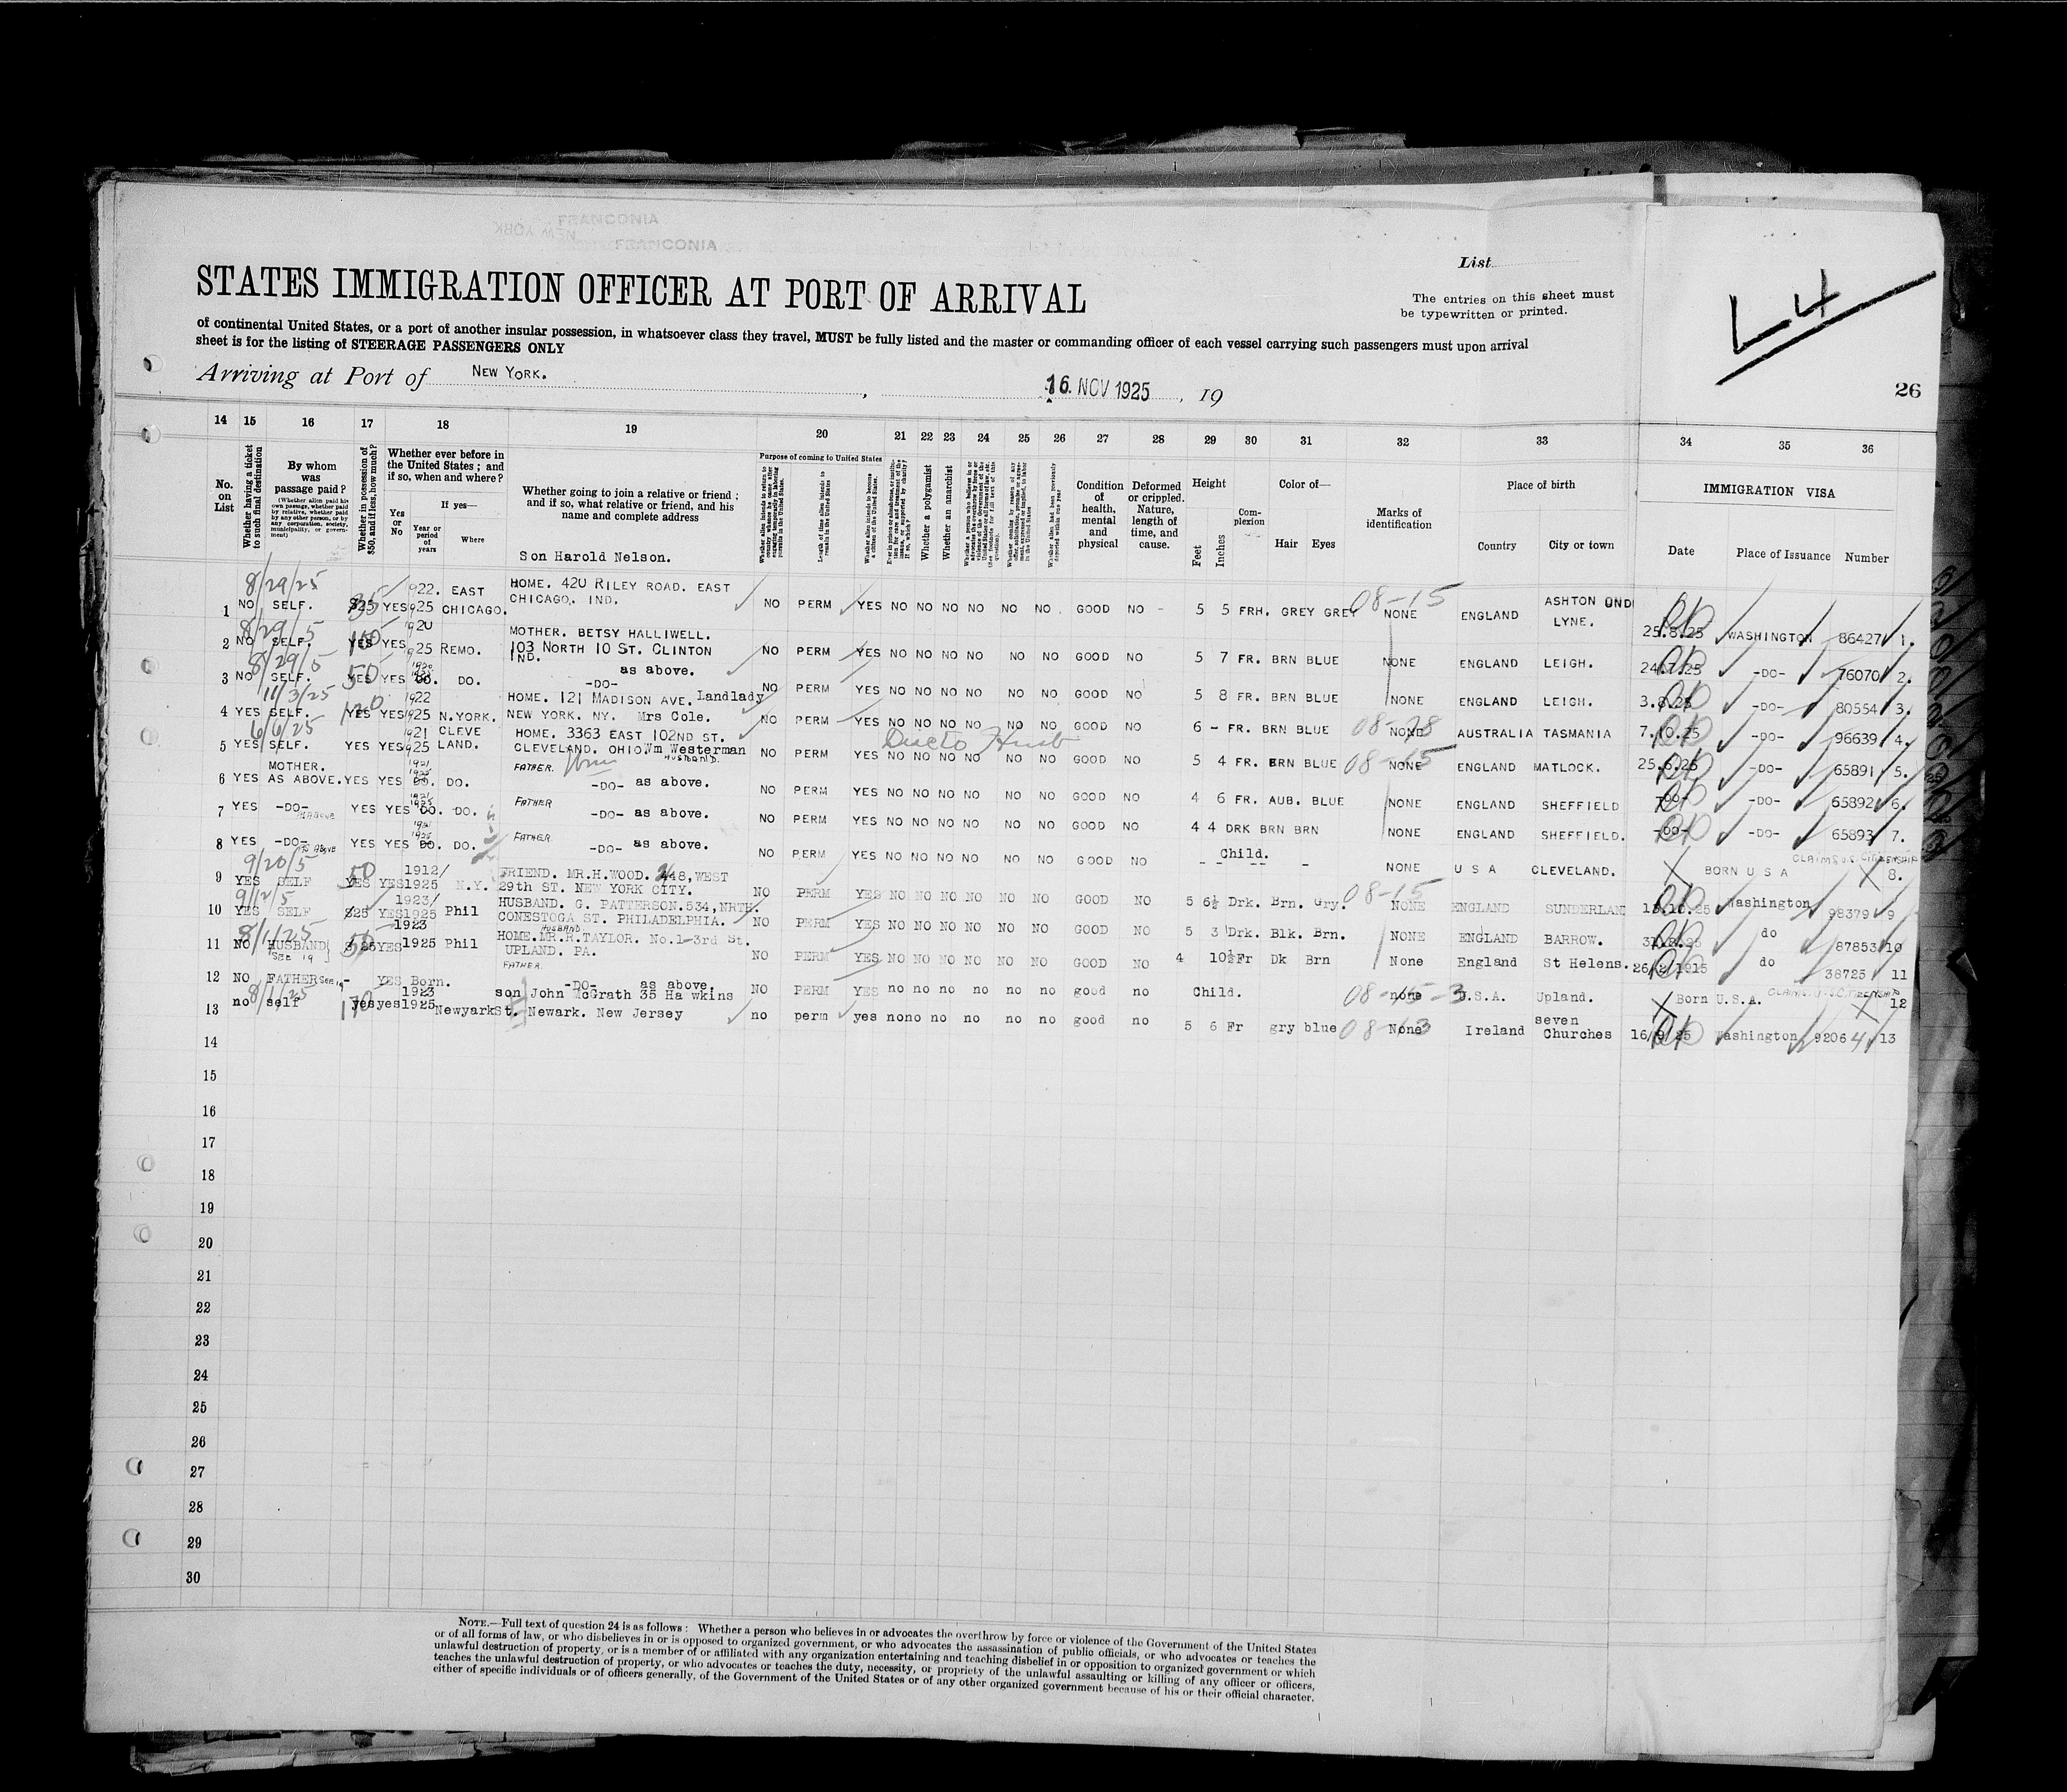 FRANCONIA
NEW YORK
FRANCONIA
STATES IMMIGRATION OFFICER AT PORT OF ARRIVAL
List
The entries on this sheet must
be typewritten or printed.
L4
of continental United States, or a port of another insular possession, in whatsoever class they travel, MUST be fully listed and the master or commanding officer of each vessel carrying such passengers must upon arrival
sheet is for the listing of STEERAGE PASSENGERS ONLY
Arriving at Port of NEW YORK. , 16. NOV 1925 , 19
26
14 15 16 17 18 19 20 21 22 23 24 25 26 27 28 29 30 31 32 33 34 35 36
No. on List
Whether having a ticket to such final destination
By whom was passage paid?
(Whether alien paid his own passage, whether paid by relative, whether paid by any other person, or by any corporation, society, municipality, or government)
Whether in possession of $50, and if less, how much?
Whether ever before in the United States; and if so, when and where?
Yes or No
If yes—
Year or period of years
Where
Whether going to join a relative or friend; and if so, what relative or friend, and his name and complete address
Purpose of coming to United States
Length of time alien intends to remain in the United States
Whether alien intends to become a citizen of the United States.
Whether a polygamist
Whether an anarchist
Condition of health, mental and physical
Deformed or crippled. Nature, length of time, and cause.
Height
Feet Inches
Complexion
Color of—
Hair Eyes
Marks of identification
Place of birth
Country City or town
IMMIGRATION VISA
Date Place of Issuance Number
Son Harold Nelson.
8/29/25
1 NO SELF. $25 35 YES 1922. 1925 EAST CHICAGO. HOME. 420 RILEY ROAD. EAST CHICAGO. IND. NO PERM YES NO NO NO NO NO NO GOOD NO - 5 5 FRH. GREY GREY 08-15 NONE ENGLAND ASHTON UND LYNE. 25.8.25 WASHINGTON 86427 1.
8/29/5
2 NO SELF. YES YES 1920 1925 REMO. MOTHER. BETSY HALLIWELL. 103 NORTH 10 ST. CLINTON IND. NO PERM YES NO NO NO NO NO NO GOOD NO 5 7 FR. BRN BLUE NONE ENGLAND LEIGH. 24.7.25 -DO- 76070 2.
8/29/5
3 NO SELF. YES 50 YES DO. DO. -DO- as above. NO PERM YES NO NO NO NO NO NO GOOD NO 5 8 FR. BRN BLUE NONE ENGLAND LEIGH. 3.8.25 -DO- 80554 3.
11/3/25
4 YES SELF. YES 120 YES 1922 1925 N.YORK. HOME. 121 MADISON AVE. Landlady NEW YORK. NY. Mrs Cole. NO PERM YES NO NO NO NO NO NO GOOD NO 6 - FR. BRN BLUE NONE AUSTRALIA TASMANIA 7.10.25 -DO- 96639 4.
6/6/25
5 YES SELF. YES YES 1921 1925 CLEVE LAND. HOME. 3363 EAST 102ND ST. CLEVELAND. OHIO Wm Westerman HUSBAND. NO PERM YES NO NO NO NO NO NO GOOD NO 5 4 FR. BRN BLUE 08-15 NONE ENGLAND MATLOCK. 25.6.25 -DO- 65891 5.
6 YES MOTHER. AS ABOVE. YES YES 1921 1925 DO. DO. FATHER. -DO- as above. NO PERM YES NO NO NO NO NO NO GOOD NO 4 6 FR. AUB. BLUE NONE ENGLAND SHEFFIELD -DO- -DO- 65892 6.
7 YES -DO- As Above YES YES 1921 1925 DO. DO. FATHER -DO- as above. NO PERM YES NO NO NO NO NO NO GOOD NO 4 4 DRK BRN BRN NONE ENGLAND SHEFFIELD. -DO- -DO- 65893 7.
8 YES -DO- As Above YES YES DO. DO. FATHER. -DO- as above. NO PERM YES NO NO NO NO NO NO GOOD NO Child. NONE U S A CLEVELAND. BORN U S A CLAIMS U.S. CITIZENSHIP 8.
9/20/5
9 YES SELF YES 50 YES 1912/ 1925 N.Y. FRIEND. MR.H.WOOD. 248,WEST 29th ST. NEW YORK CITY. NO PERM YES NO NO NO NO NO NO GOOD NO 5 6½ Drk. Brn. Gry. 08-15 NONE ENGLAND SUNDERLAN 13.10.25 Washington 98379 9
9/12/5
10 YES SELF $25 YES 1923/ 1925 Phil HUSBAND. G. PATTERSON.534,NRTH. CONESTOGA ST. PHILADELPHIA. NO PERM YES NO NO NO NO NO NO GOOD NO 5 3 Drk. Blk. Brn. NONE ENGLAND BARROW. do 87853 10
8/1/25
11 NO HUSBAND See 19 $25 YES 1923 1925 Phil HOME. HUSBAND MR.R.TAYLOR. No.1-3rd St. UPLAND. PA. NO PERM YES NO NO NO NO NO NO GOOD NO 4 10½ Fr Dk Brn None England St Helens. 26/2/1915 do 38725 11
12 NO FATHER See 19 - YES Born. FATHER. -DO- as above. NO PERM YES no no no no no no good no Child. none U.S.A. Upland. Born U.S.A. CLAIMS U.S. CITIZENSHIP 12
8/1/25
13 no self yes 170 yes 1923 1925 Newyark son John McGrath 35 Hawkins St. Newark. New Jersey no perm yes no no no no no no good no 5 6 Fr gry blue None Ireland seven Churches 16/9/25 Washington 92064 13
Direct to Husb
14
15
16
17
18
19
20
21
22
23
24
25
26
27
28
29
30
NOTE.—Full text of question 24 is as follows: Whether a person who believes in or advocates the overthrow by force or violence of the Government of the United States
or of all forms of law, or who disbelieves in or is opposed to organized government, or who advocates the assassination of public officials, or who advocates or teaches the
unlawful destruction of property, or is a member of or affiliated with any organization entertaining and teaching disbelief in or opposition to organized government or which
teaches the unlawful destruction of property, or who advocates or teaches the duty, necessity, or propriety of the unlawful assaulting or killing of any officer or officers,
either of specific individuals or of officers generally, of the Government of the United States or of any other organized government because of his or their official character.